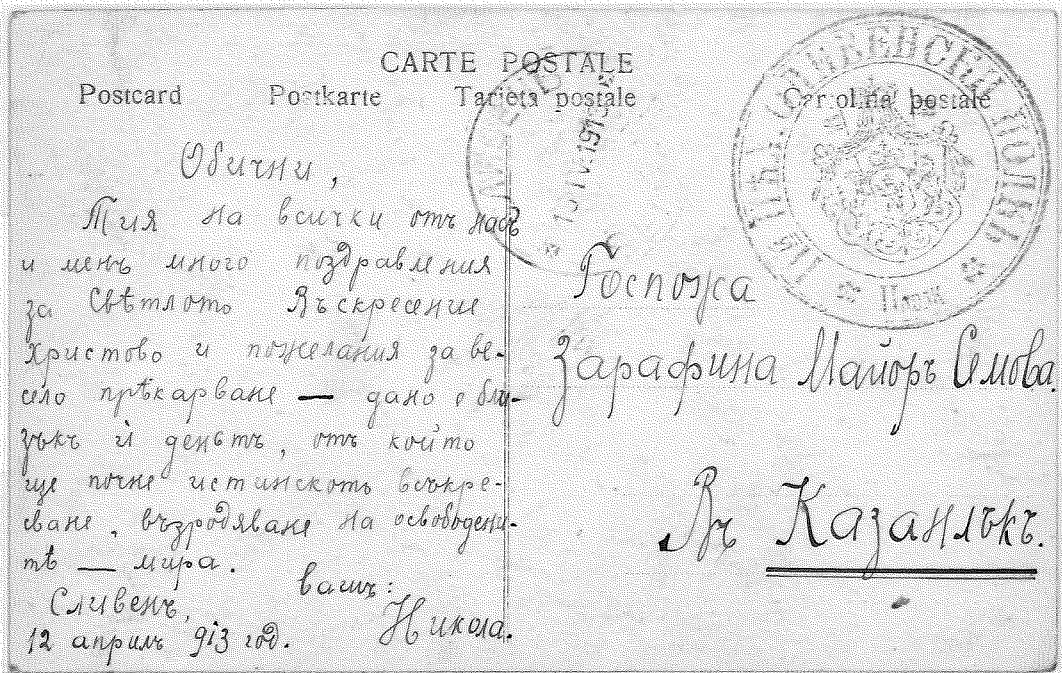 CARTE POSTALE
Postcard Postkarte Tarjeta postale Cartolina postale
Обични,
Тия на всички отъ насъ
и менъ много поздравления
за Свѣтлото Въскресение
Христово и пожелания за ве-
село прѣкарване — дано е бли-
зъкъ и деньтъ, отъ който
ще почне истинскотъ въскре-
сване, възродяване на освободени-
тѣ — мира.
вашъ:
Сливенъ,
Никола.
12 априлъ 913 год.
Госпожа
Зарафина Майоръ Семова.
Въ Казанлъкъ.
СЛИВЕНСКИ ПОЛКЪ